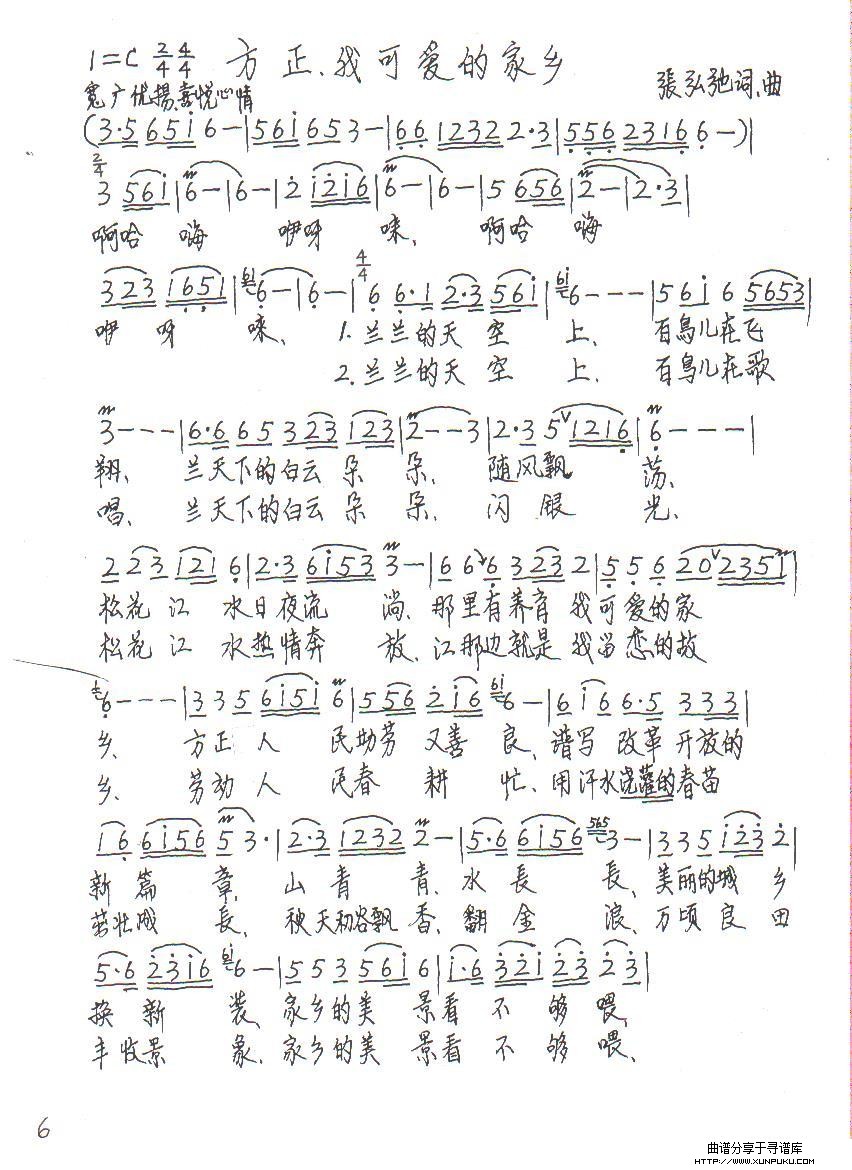 1=C 2/4 4/4 方正、我可爱的家乡
宽广优揚,喜悦心情 張弘弛词、曲
(3·5 6 5 i 6 - | 5 6 i 6 5 3 - | 6 6 1 2 3 2 2·3 | 5 5 6 2 3 1 6 6 -) |
2/4
3 5 6 i | 6 - | 6 - | 2 i 2 i 6 | 6 - | 6 - | 5 6 5 6 | 2 - | 2·3 |
啊哈 嗨 咿呀 唻、 啊哈 嗨
4/4
3 2 3 1 6 5 1 | 6 - | 6 - | 6 6·1 2·3 5 6 i | 6 - - - | 5 6 i 6 5 6 5 3 |
咿 呀 唻、 1.兰兰的天 空 上、 百鳥儿在飞
2.兰兰的天 空 上、 百鳥儿在歌
3 - - - | 6·6 6 5 3 2 3 1 2 3 | 2 - - 3 | 2·3 5 1 2 1 6 | 6 - - - |
翔、 兰天下的白云 朵 朵、 随风飘 荡、
唱、 兰天下的白云 朵 朵、 闪 银 光、
2 2 3 1 2 1 6 | 2·3 6 i 5 3 3 - | 6 6 6 3 2 3 2 | 5 5 6 2 0 2 3 5 i |
松花 江 水日夜流 淌、那里有养育 我可爱的家
松花 江 水热情奔 放、江那边就是 我留恋的故
6 - - - | 3 3 5 6 i 5 i 6 | 5 5 6 2 i 6 6 - | 6 i 6 6·5 3 3 3 |
乡、 方正 人 民勤劳 又善 良、谱写 改革 开放的
乡、 劳动人 民春 耕 忙、用汗水浇灌的春苗
i 6 6 i 5 6 5 3· | 2·3 1 2 3 2 2 - | 5·6 6 i 5 6 3 - | 3 3 5 i 2 3 2 |
新 篇 章、 山 青 青、水 長 長、美丽的城 乡
茁壮成 長、 秧天初谷飘 香、翻 金 浪、万顷良 田
5·6 2 3 i 6 6 - | 5 5 3 5 6 i 6 | i·6 3 2 i 2 3 2 3 |
换 新 装、家乡的美 景看 不 够 喂、
丰收景 象、家乡的美 景看 不 够 喂、
6
曲谱分享于寻谱库
HTTP://WWW.XUNPUKU.COM